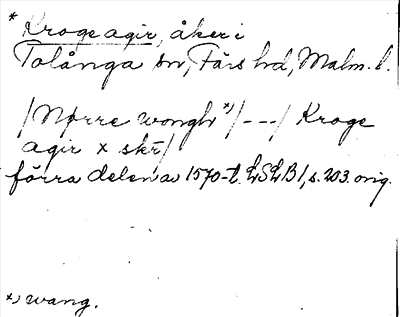 * Kroge agir, åker i
Tolånga sn, Färs hd, Malm. l.
/Nørre wongh *)/ - - - / Kroge
agir x skr̄/
förra delen av 1570-t. LSLB 1, s. 203. orig.
*) wang.